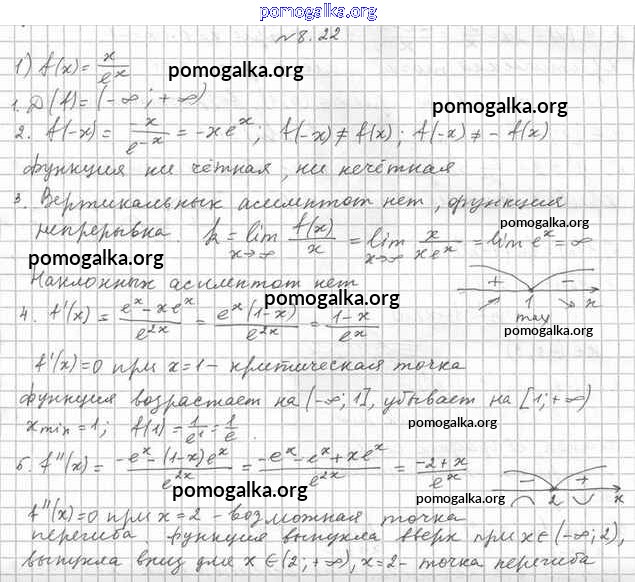 pomogalka.org
№8.22
1) f(x) = x/e^x
pomogalka.org
1. D(f) = (-∞; +∞)
pomogalka.org
2. f(-x) = -x/e^(-x) = -xe^x; f(-x) ≠ f(x); f(-x) ≠ -f(x)
функция ни чётная, ни нечётная
3. Вертикальных асимптот нет, функция
pomogalka.org
непрерывна. k = lim x→∞ f(x)/x = lim x→∞ x/(xe^x) = lim e^x = ∞
pomogalka.org
Наклонных асимптот нет
+ - 1 max x
pomogalka.org
4. f'(x) = (e^x - xe^x)/e^(2x) = e^x(1-x)/e^(2x) = (1-x)/e^x
pomogalka.org
f'(x)=0 при x=1 - критическая точка
функция возрастает на (-∞; 1], убывает на [1; +∞)
pomogalka.org
x min = 1; f(1) = 1/e^1 = 1/e.
5. f''(x) = (-e^x - (1-x)e^x)/e^(2x) = (-e^x - e^x + xe^x)/e^(2x) = (-2+x)/e^x
- + 2 x
pomogalka.org
pomogalka.org
f''(x)=0 при x=2 - возможная точка
перегиба. Функция выпукла вверх при x∈(-∞; 2),
выпукла вниз для x∈(2; +∞), x=2 - точка перегиба